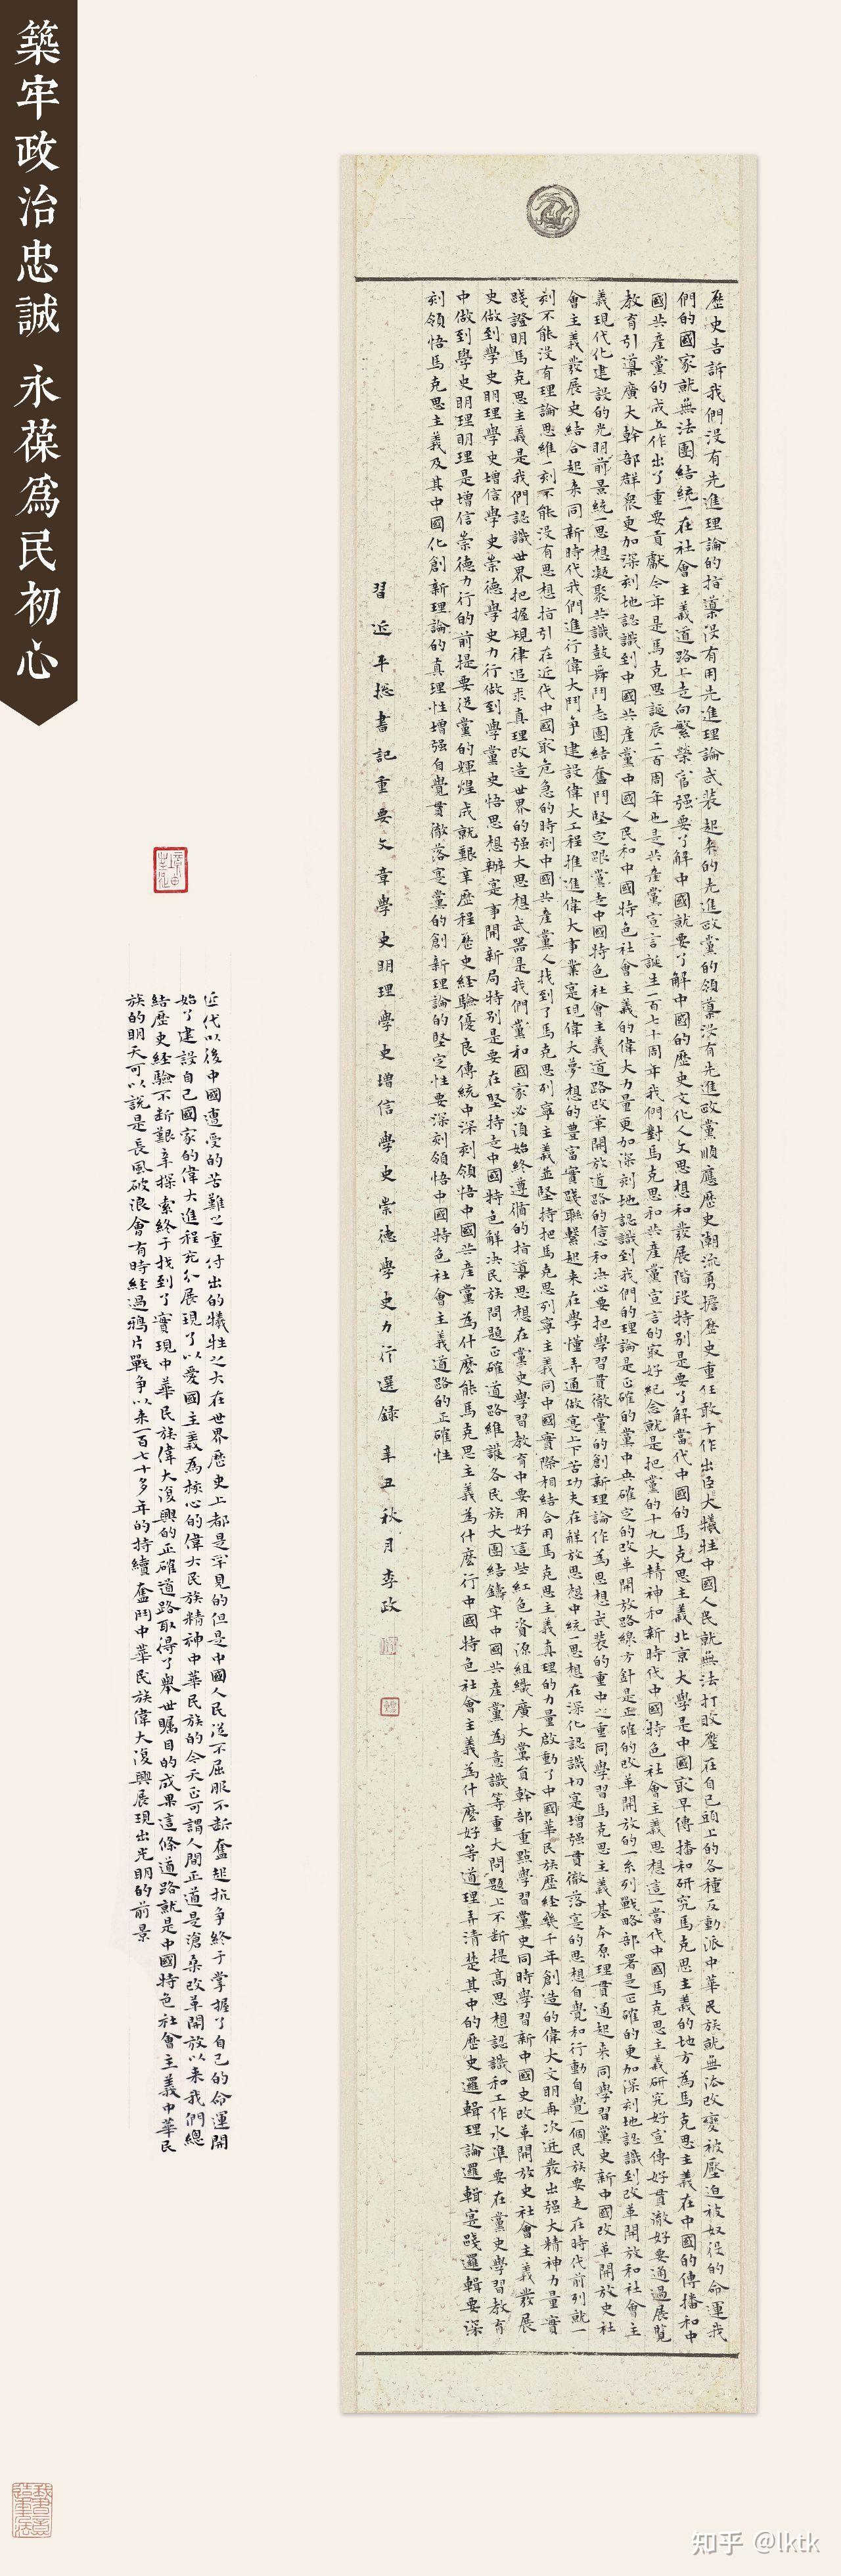 築牢政治忠誠 永葆爲民初心
歷史告訴我們没有先進理論的指導没有用先進理論武装起來的先進政黨的領導没有先進政黨順應歷史潮流勇擔歷史重任敢于作出巨大犧牲中國人民就無法打敗壓在自己頭上的各種反動派中華民族就無法改變被壓迫被奴役的命運我
們的國家就無法團結統一在社會主義道路上走向繁榮富强要了解中國就要了解中國的歷史文化人文思想和發展階段特别是要了解當代中國的馬克思主義北京大學是中國最早傳播和研究馬克思主義的地方為馬克思主義在中國的傳播和中
國共產黨的成立作出了重要貢獻今年是馬克思誕辰二百周年也是共產黨宣言誕生一百七十周年我們對馬克思和共產黨宣言的最好紀念就是把黨的十九大精神和新時代中國特色社會主義思想這一當代中國馬克思主義研究好宣傳好貫徹好要通過展覽
教育引導廣大幹部群衆更加深刻地認識到中國共產黨中國人民和中國特色社會主義的偉大力量更加深刻地認識到我們的理論是正確的黨中央確定的改革開放路線方針是正確的改革開放的一系列戰略部署是正確的更加深刻地認識到改革開放和社會主
義現代化建設的光明前景統一思想凝聚共識鼓舞鬥志團結奮鬥堅定跟黨走中國特色社會主義道路改革開放道路的信心和决心要把學習貫徹黨的創新理論作為思想武裝的重中之重同學習馬克思主義基本原理貫通起來同學習黨史新中國改革開放史社
會主義發展史結合起來同新時代我們進行偉大鬥争建設偉大工程推進偉大事業寔現偉大夢想的豊富實踐聯繫起來在學懂弄通做寔上下苦功夫在解放思想中統一思想在深化認識切寔增强貫徹落寔的思想自覺和行動自覺一個民族要走在時代前列就一
刻不能没有理論思維一刻不能没有思想指引在近代中國最危急的時刻中國共產黨人找到了馬克思列寧主義並堅持把馬克思列寧主義同中國實際相結合用馬克思主義真理的力量啟動了中國華民族歷經幾千年創造的偉大文明再次迸發出强大精神力量實
踐證明馬克思主義是我們認識世界把握規律追求真理改造世界的强大思想武器是我們黨和國家必須始終遵循的指導思想在黨史學習教育中要用好這些紅色資源組織廣大黨員幹部重點學習黨史同時學習新中國史改革開放史社會主義發展
史做到學史明理學史增信學史崇德學史力行做到學黨史悟思想辦寔事開新局特别是要在堅持走中國特色解决民族問題正確道路維護各民族大團結鑄牢中國共產黨為意識等重大問題上不断提高思想認識和工作水準要在黨史學習教育
中做到學史明理明理是增信崇德力行的前提要從黨的輝煌成就艱辛歷程歷史経驗優良傳統中深刻領悟中國共產黨為什麽能馬克思主義為什麽行中國特色社會主義為什麽好等道理弄清楚其中的歷史邏輯理論邏輯寔踐邏輯要深
刻領悟馬克思主義及其中國化創新理論的真理性增强自覺貫徹落寔黨的創新理論的堅定性要深刻領悟中國特色社會主義道路的正確性
習近平揔書記重要文章學史明理學史增信學史崇德學史力行選録 辛丑秋月李政
近代以後中國遭受的苦難之重付出的犧牲之大在世界歷史上都是罕見的但是中國人民從不屈服不断奮起抗争終于掌握了自己的命運開
始了建設自己國家的偉大進程充分展現了以愛國主義為核心的偉大民族精神中華民族的今天正可謂人間正道是滄桑改革開放以来我們總
結歷史経驗不断艱辛探索終于找到了實現中華民族偉大復興的正確道路取得了舉世矚目的成果這條道路就是中國特色社會主義中華民
族的明天可以說是長風破浪會有時経過鴉片戰争以来一百七十多年的持續奮鬥中華民族偉大復興展現出光明的前景
知乎 @lktk